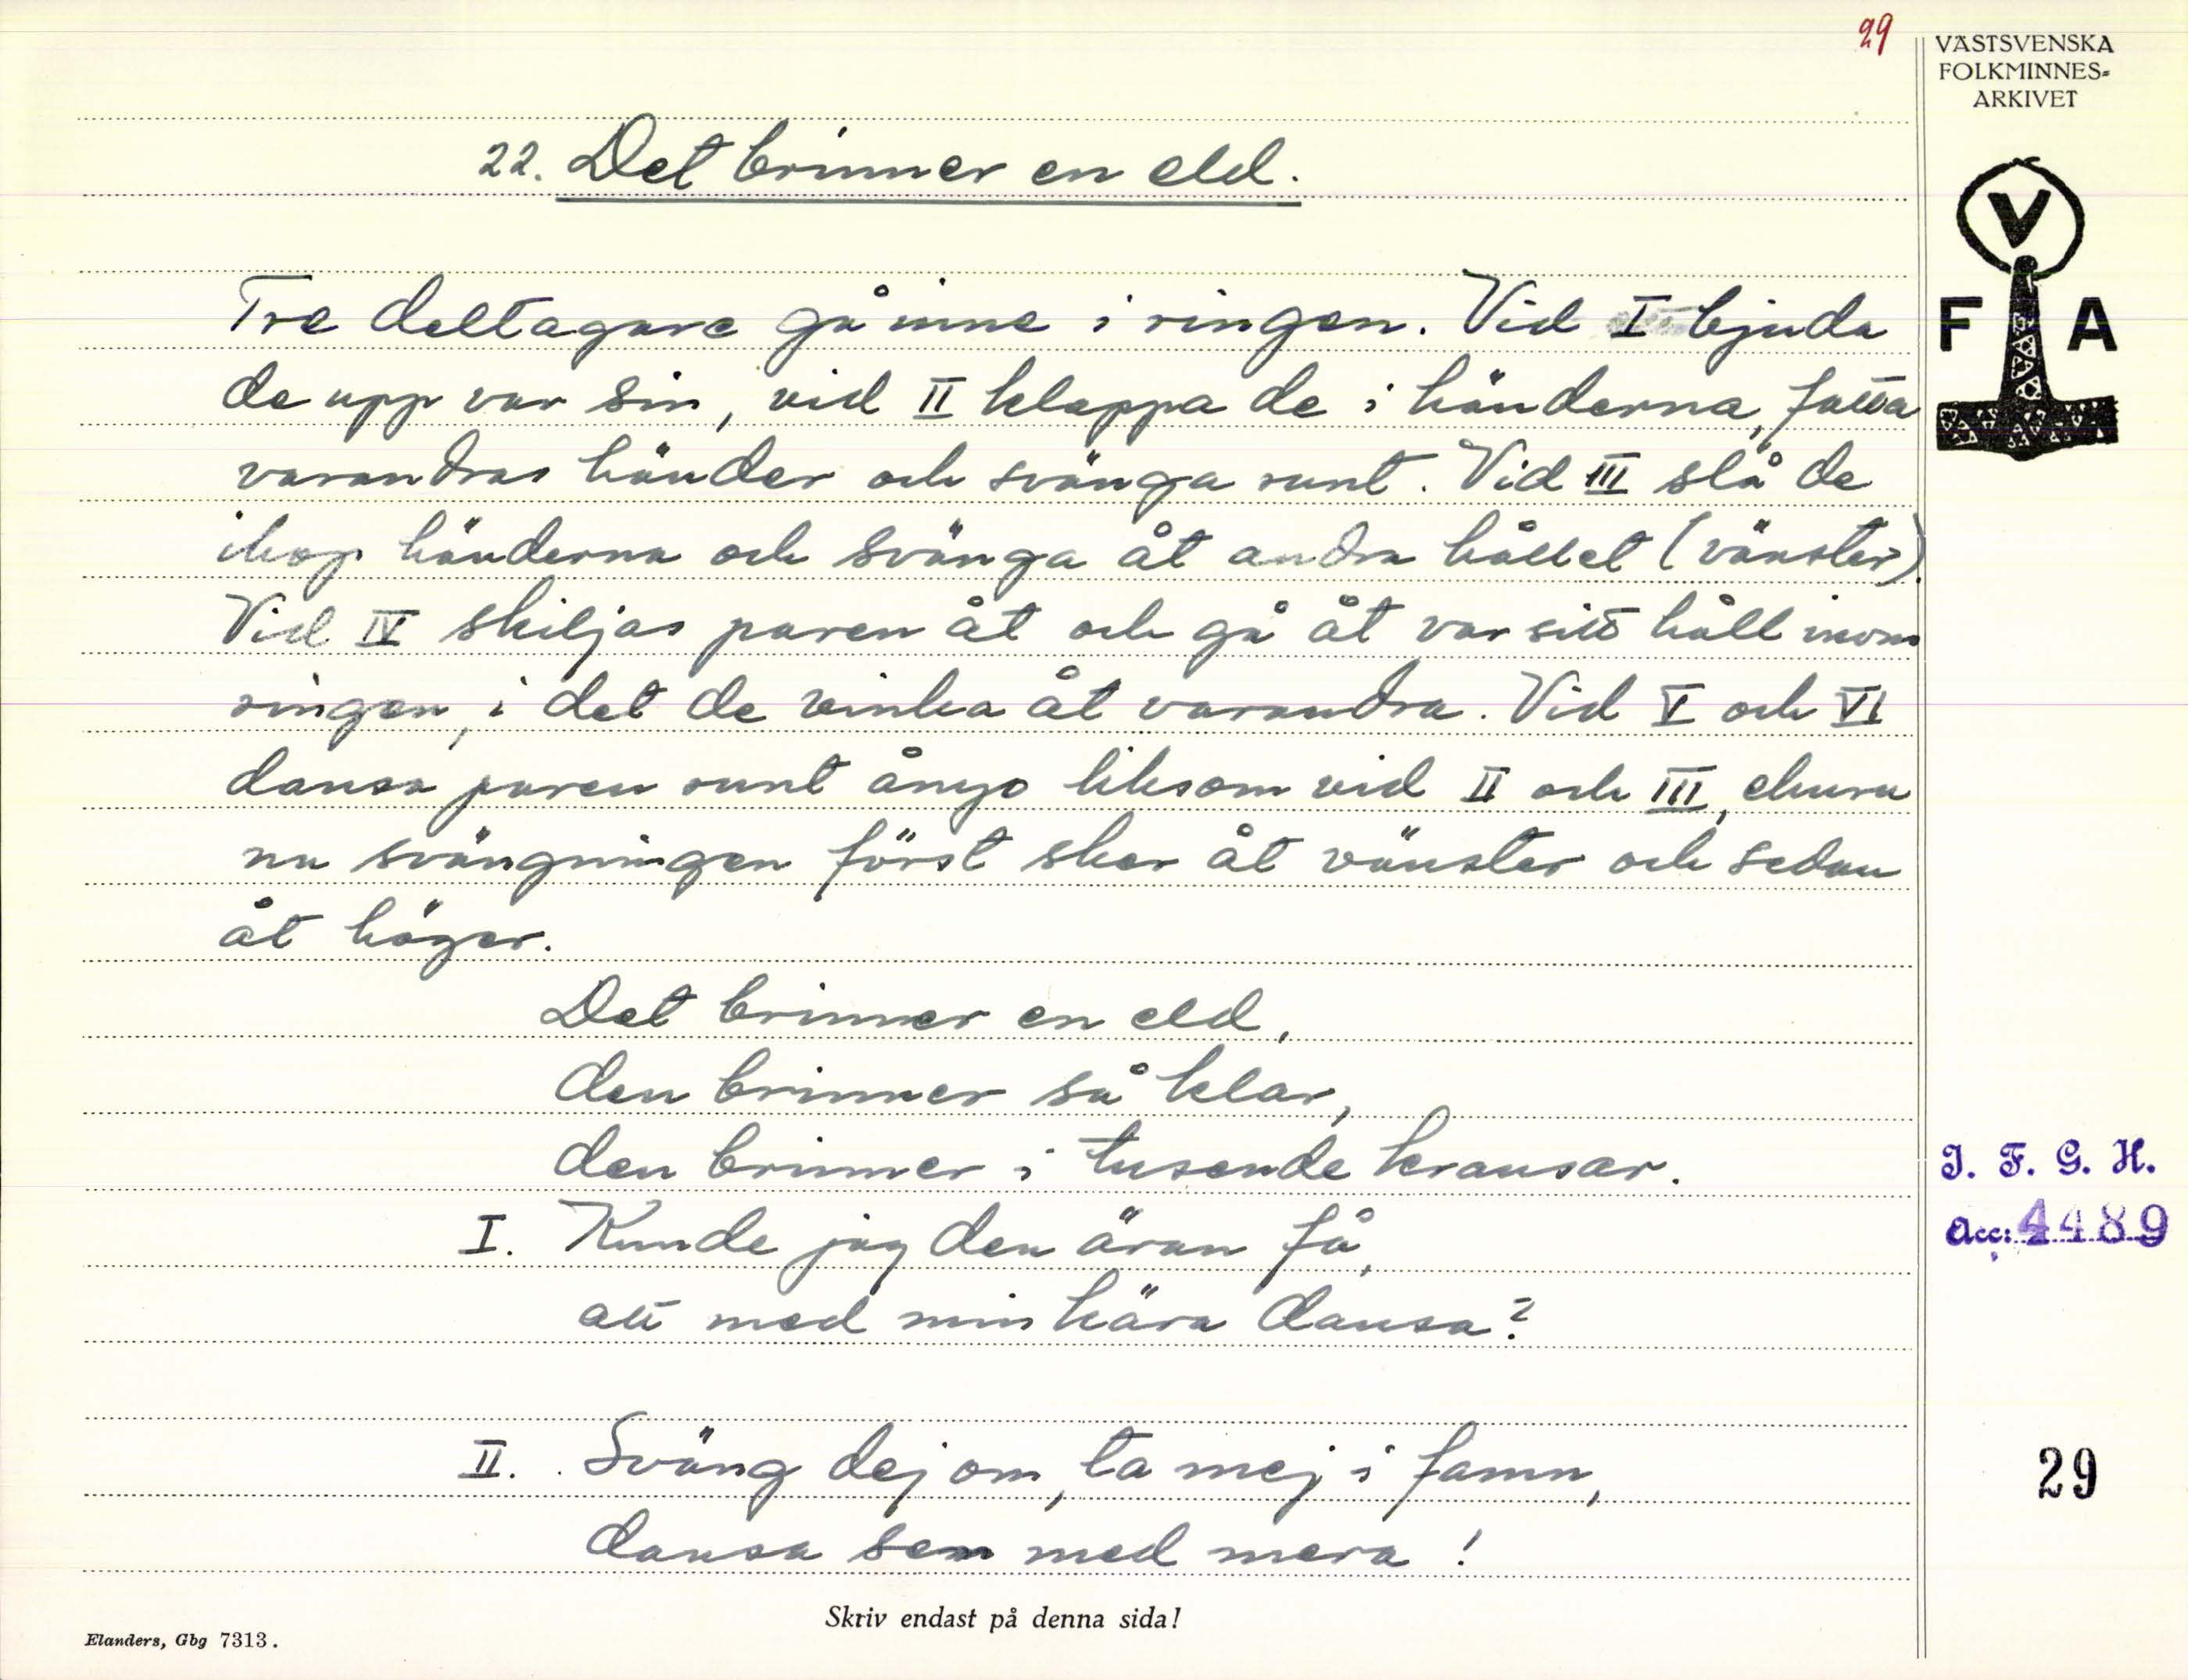 29
VÄSTSVENSKA
FOLKMINNES-
ARKIVET
22. Det brinner en eld.
Tre deltagare gå inne i ringen. Vid I bjuda
de upp var sin, vid II klappa de i händerna, fatta
varandras händer och svänga runt. Vid III slå de
ihop händerna och svänga åt andra hållet (vänster).
Vid IV skiljas paren åt och gå åt var sitt håll inom
ringen, i det de vinka åt varandra. Vid V och VI
dansa paren runt ånyo liksom vid II och III, ehuru
nu svängningen först sker åt vänster och sedan
åt höger.
Det brinner en eld,
den brinner så klar,
den brinner i tusende kransar.
I. Kunde jag den äran få,
att med min kära dansa?
II. Sväng dej om, ta mej i famn,
dansa sen med mera!
V
F A
I. F. G. H.
Acc: 4489
29
Skriv endast på denna sida!
Elanders, Gbg 7313.